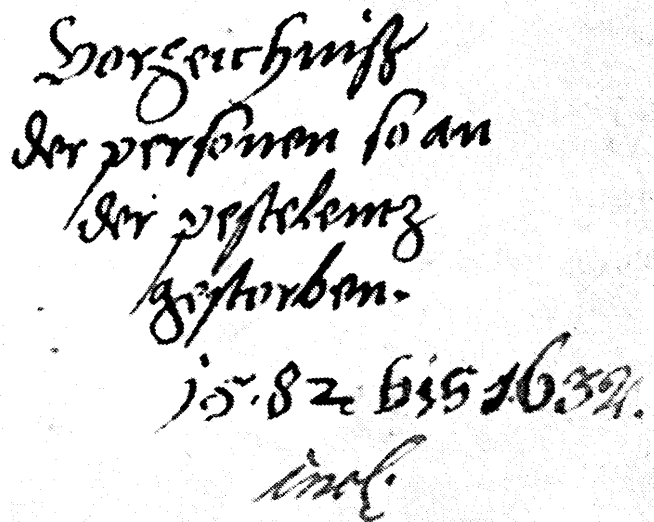 Vorzeichniß
der personen so an
der pestelentz
gestorben.
1582 bis 1632.
incl.